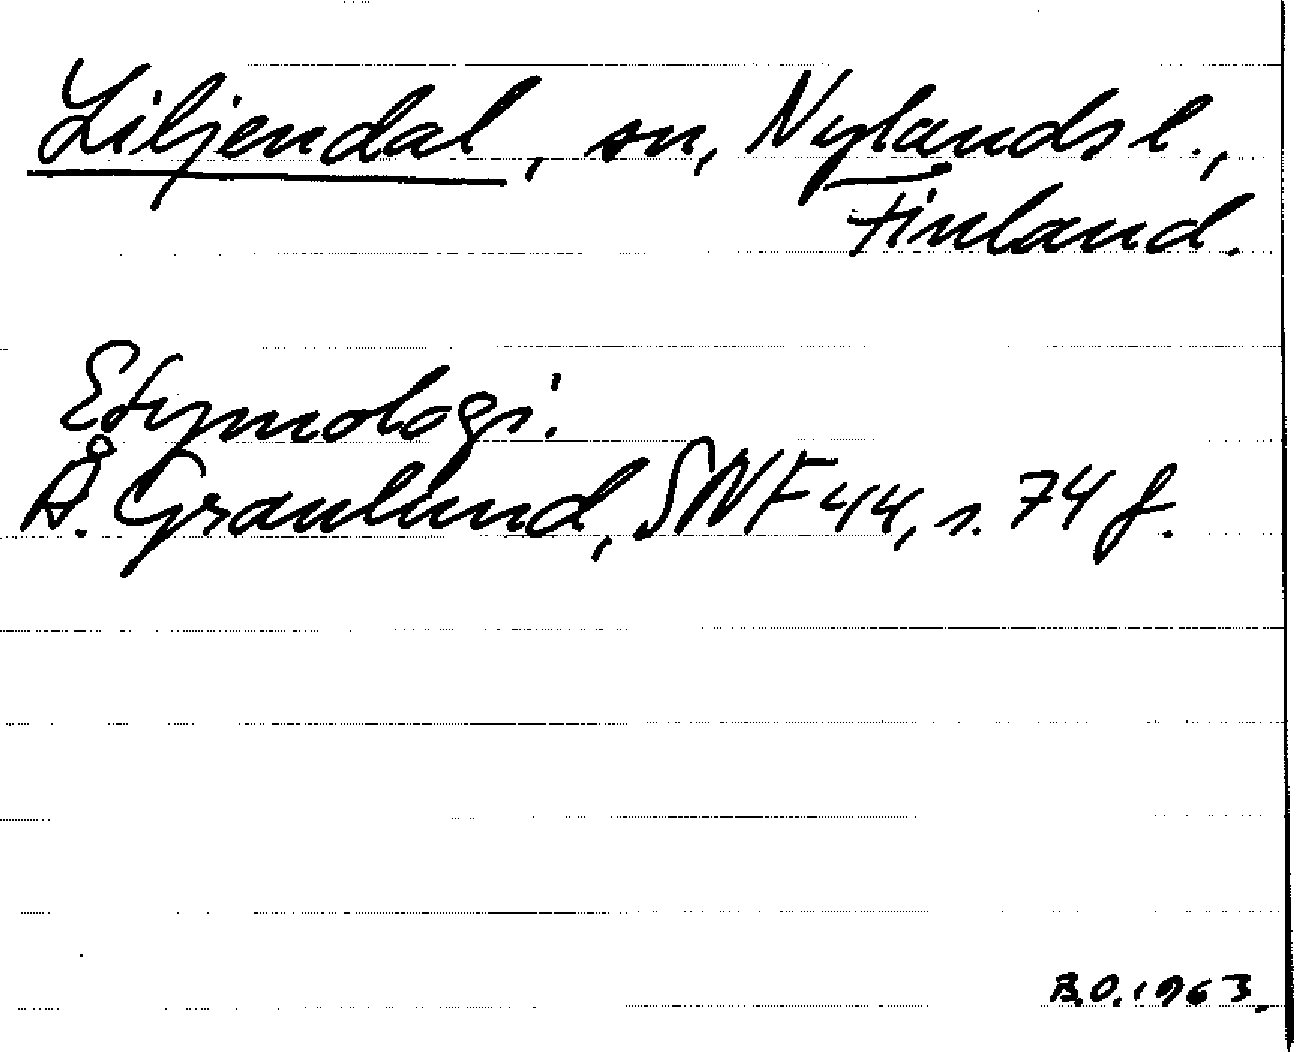 Liljendal, sn, Nylands l.,
Finland.
Etymologi:
Å. Granlund, SNF 44, s. 74 f.
B.O. 1963.